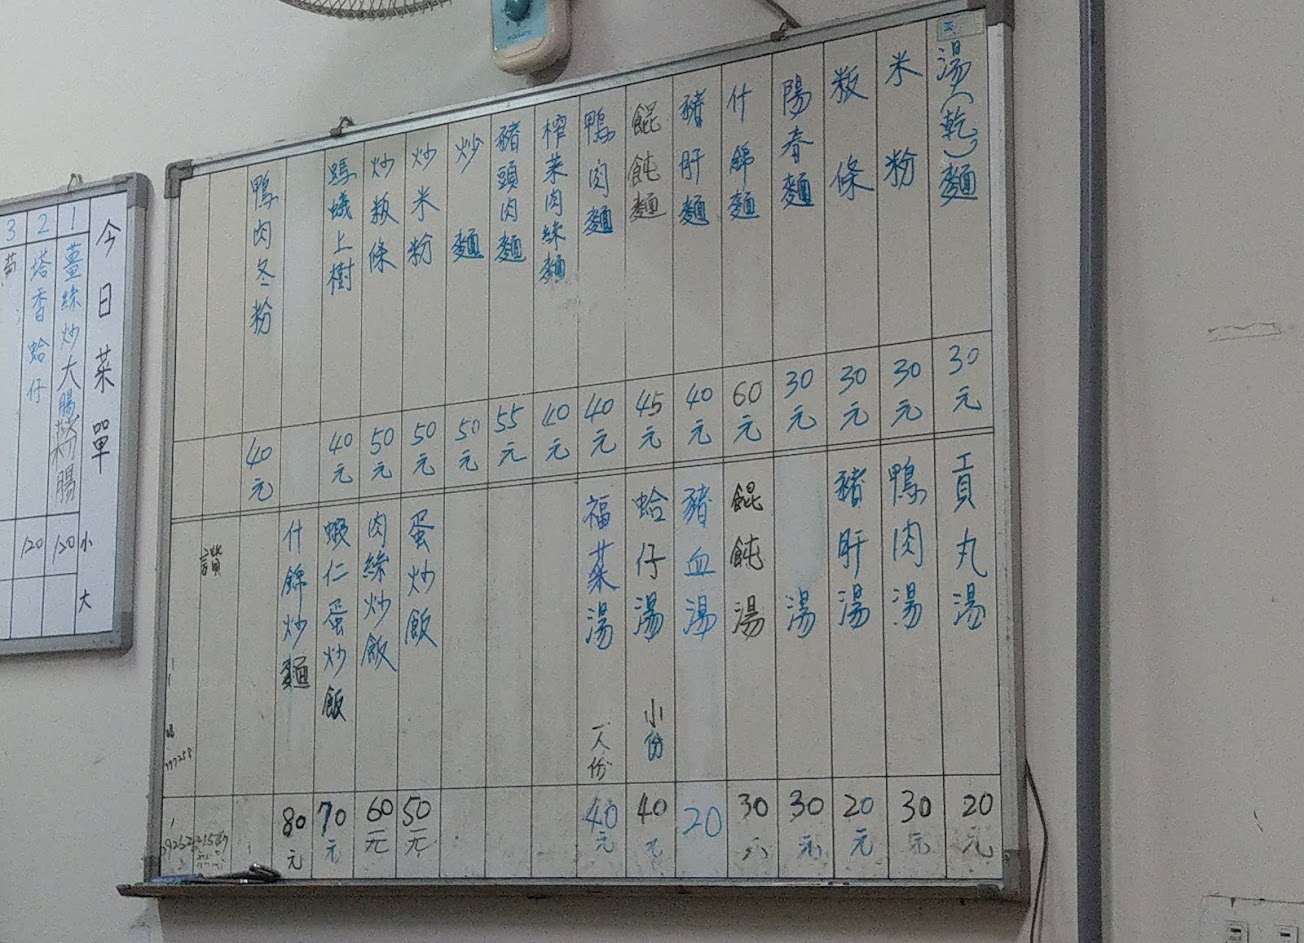 湯(乾)麵 30元
米粉 30元
粄條 30元
陽春麵 30元
什錦麵 60元
豬肝麵 40元
餛飩麵 45元
鴨肉麵 40元
榨菜肉絲麵 40元
豬頭肉麵 55元
炒麵 50元
炒米粉 50元
炒粄條 50元
螞蟻上樹 40元
鴨肉冬粉 40元
貢丸湯 20元
鴨肉湯 30元
豬肝湯 20元
湯 30元
餛飩湯 30元
豬血湯 20
蛤仔湯 小份 40元
福菜湯 一人份 40元
蛋炒飯 50元
肉絲炒飯 60元
蝦仁蛋炒飯 70元
什錦炒麵 80元
讚
今日菜單 小 大
1 薑絲炒大腸 粉腸 120
2 塔香蛤仔 120
3